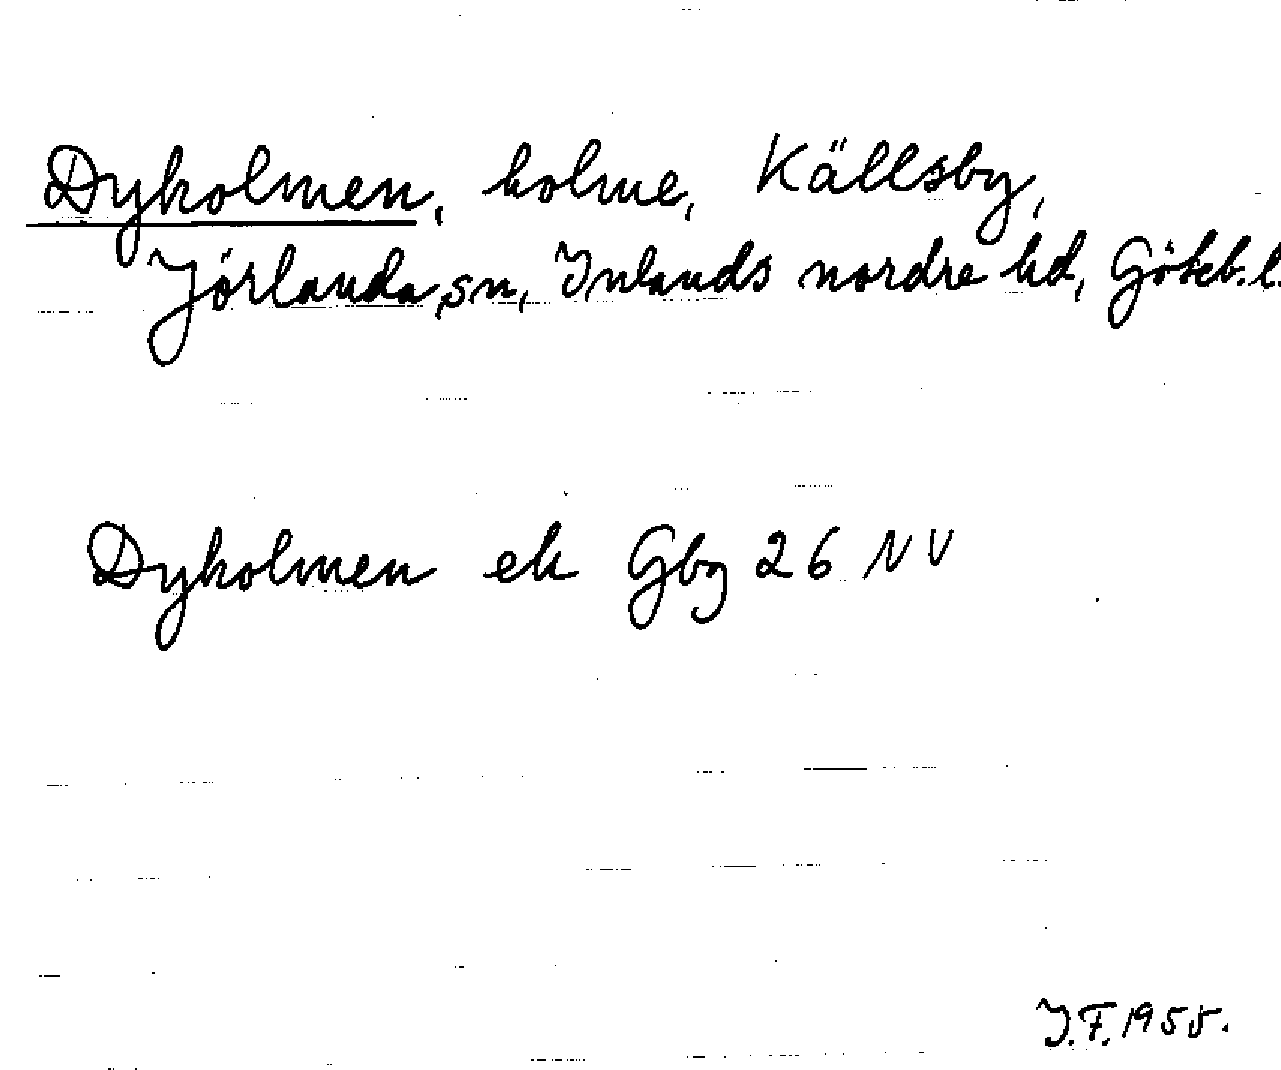 Dyholmen, holme, Källsby,
Jörlanda sn, Inlands nordre hd, Göteb. l.
Dyholmen ek Gbg 26 NV
J.F. 1955.